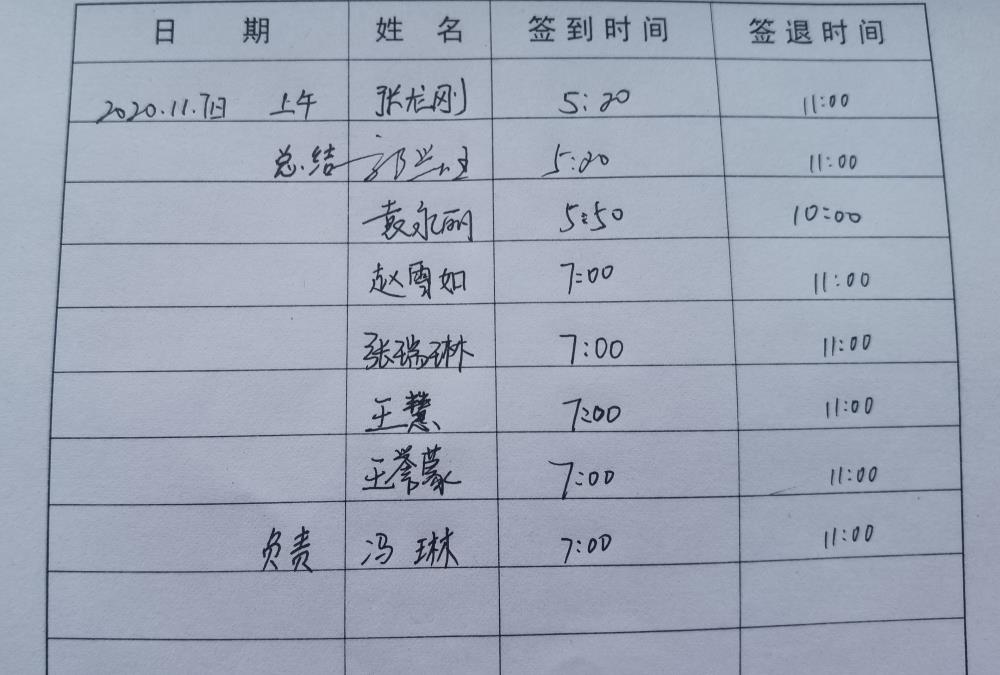 日 期 姓 名 签到时间 签退时间
2020.11.7日 上午 张龙刚 5:20 11:00
总结 5:20 11:00
袁永丽 5:50 10:00
赵雪如 7:00 11:00
张瑞琳 7:00 11:00
王慧 7:00 11:00
王誉蒙 7:00 11:00
负责 冯琳 7:00 11:00